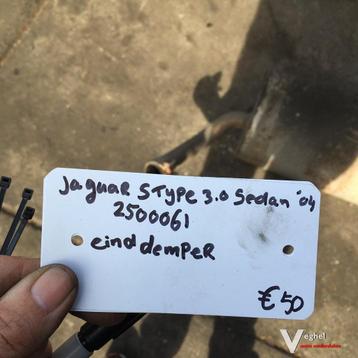 Jaguar S Type 3.0 Sedan '04
2500061
einddemper
€50
Veghel